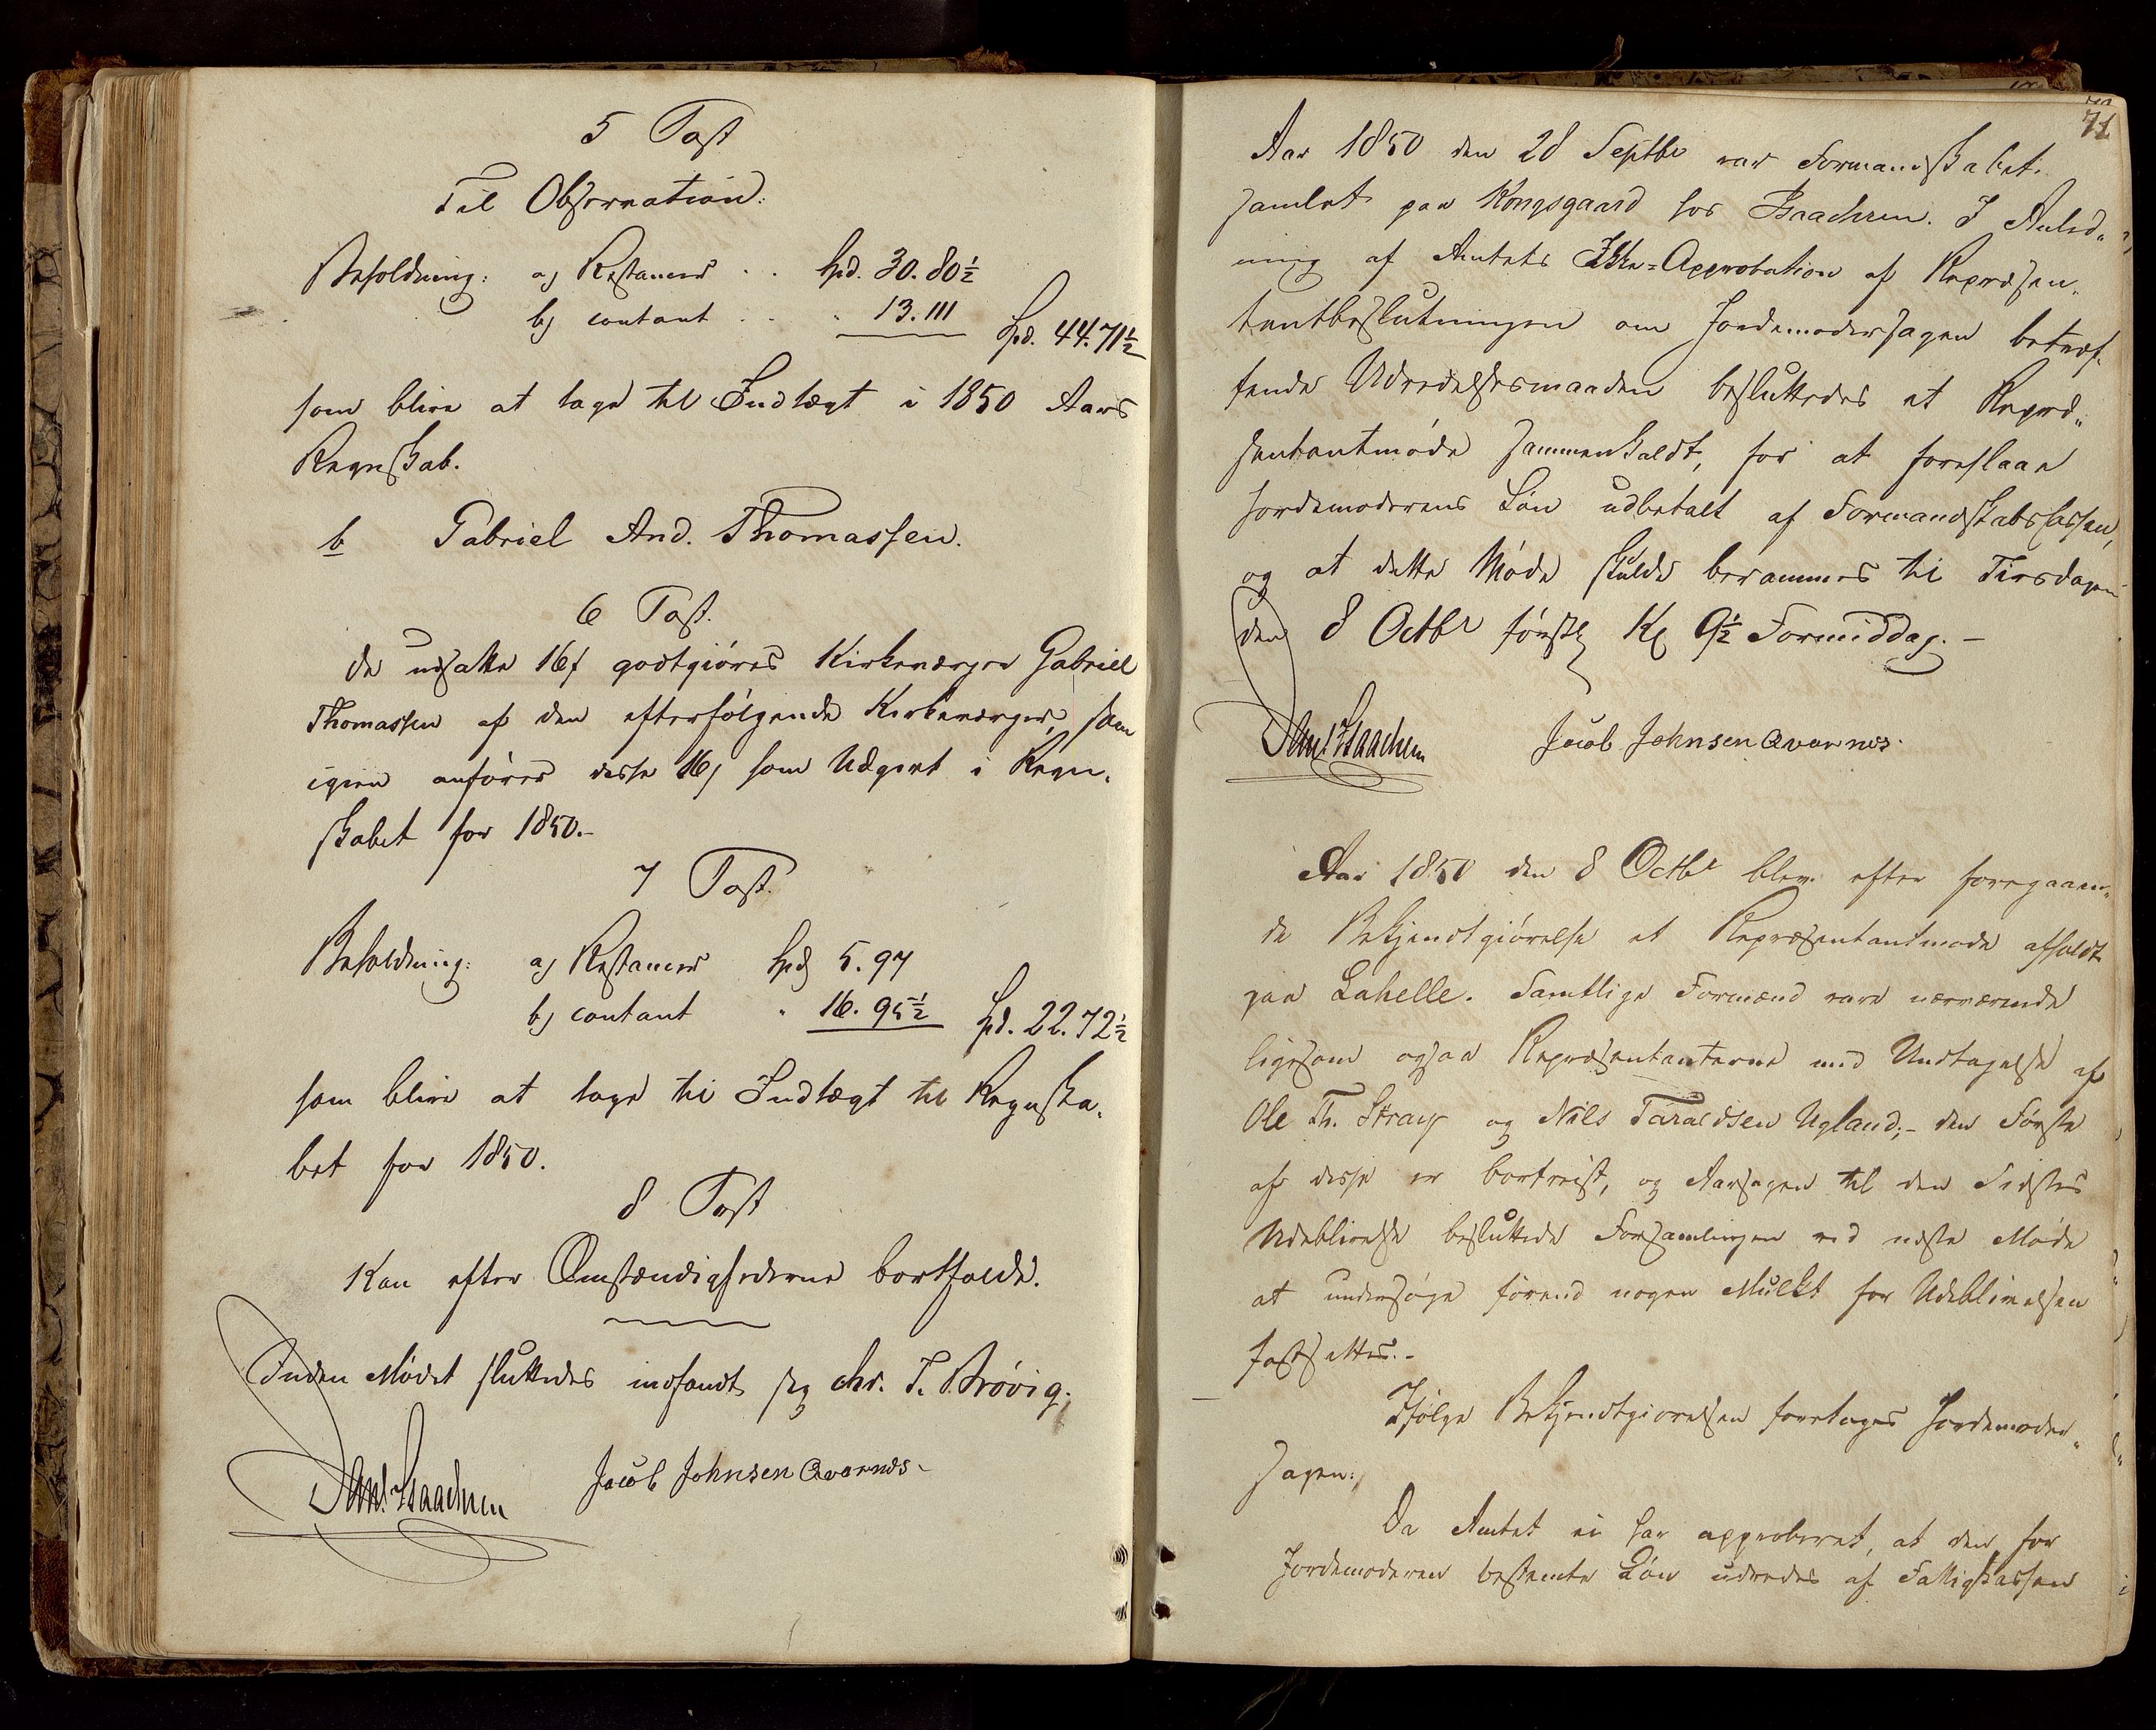 5 Post
Til Observation:
Beholdning: a) Restancer . . Spd. 30. 80½
b) contant . . . 13. 111 Spd. 44. 71½
som blive at tage til Indtægt i 1850 Aars
Regnskab.
b Gabriel And. Thomassen.
6 Post.
De udsatte 16 godtgjøres Kirkeværger Gabriel
Thomassen af den efterfølgende Kirkeværger, som
igien anfører disse 16 som Udgivt i Regn-
skabet for 1850.-
7 Post.
Beholdning: a) Restancer Spd 5. 97
b) contant " 16. 95½ Spd. 22. 72½
som blive at tage til Indtægt til Regnska-
bet for 1850.
8 Post
Kan efter Omstændighederne bortfalde.
Inden Mødet sluttedes indfandt sig Chr. T. Brøvig.
Danl. Isaachsen Jacob Johnsen Qvarnes-
71
Aar 1850 den 28 Septbr var Formandskabet
samlet paa Kongsgaard hos Isaachsen. I Anled-
ning af Amtets Ikke=Approbation af Repræsen-
tantbeslutningen om Jordemodersagen betræf-
fende Udredelsesmaaden besluttedes et Repræ-
sentantmøde sammenkaldt, for at foreslaae
Jordemoderens Løn udbetalt af Formandskabskassen,
og at dette Møde skulde berammes til Tirsdagen
den 8 Octbr førstk Kl 9½ Formiddag. -
Danl Isaachsen Jacob Johnsen Qvarnes.
Aar 1850 den 8 Octbr blev efter foregaaen-
de Bekjendtgiørelse et Repræsentantmøde afholdt
paa Lahelle. Samtlige Formænd vare nærværende
ligesom ogsaa Repræsentanterne med Undtagelse af
Ole Th. Stray og Niels Taraldsen Ugland;- den Første
af disse er bortreist, og Aarsagen til den Sidstes
Udeblivelse besluttede Forsamlingen ved næste Møde
at undersøge førend nogen Mulkt for Udeblivelsen
fastsættes.-
Ifølge Bekjendtgiørelsen foretoges Jordemoder-
sagen:
Da Amtet ei har approberet, at den for
Jordemoderen bestemte Løn udredes af Fattigkassen